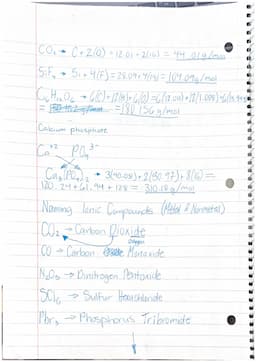 CO₂ → C + 2(O) = 12.01 + 2(16) = 44.01 g/mol
SiF₄ → Si + 4(F) = 28.09 + 4(19) = 104.09 g/mol
C₆H₁₂O₆ → 6(C) + 12(H) + 6(O) = 6(12.01) + 12(1.008) + 6(
= = 180.156 g/mol
Calcium phosphate
Ca⁺² PO₄³⁻
Ca₃(PO₄)₂ → 3(40.08) + 2(30.97) + 8(16) =
120.24 + 61.94 + 128 = 310.18 g/mol
Naming Ionic Compounds (Metal & Nonmetal)
CO₂ → Carbon Dioxide
oxygen
CO → Carbon Monoxide
N₂O₅ → Dinitrogen Pentoxide
SCl₆ → Sulfur Hexachloride
PBr₃ → Phosphorus Tribromide